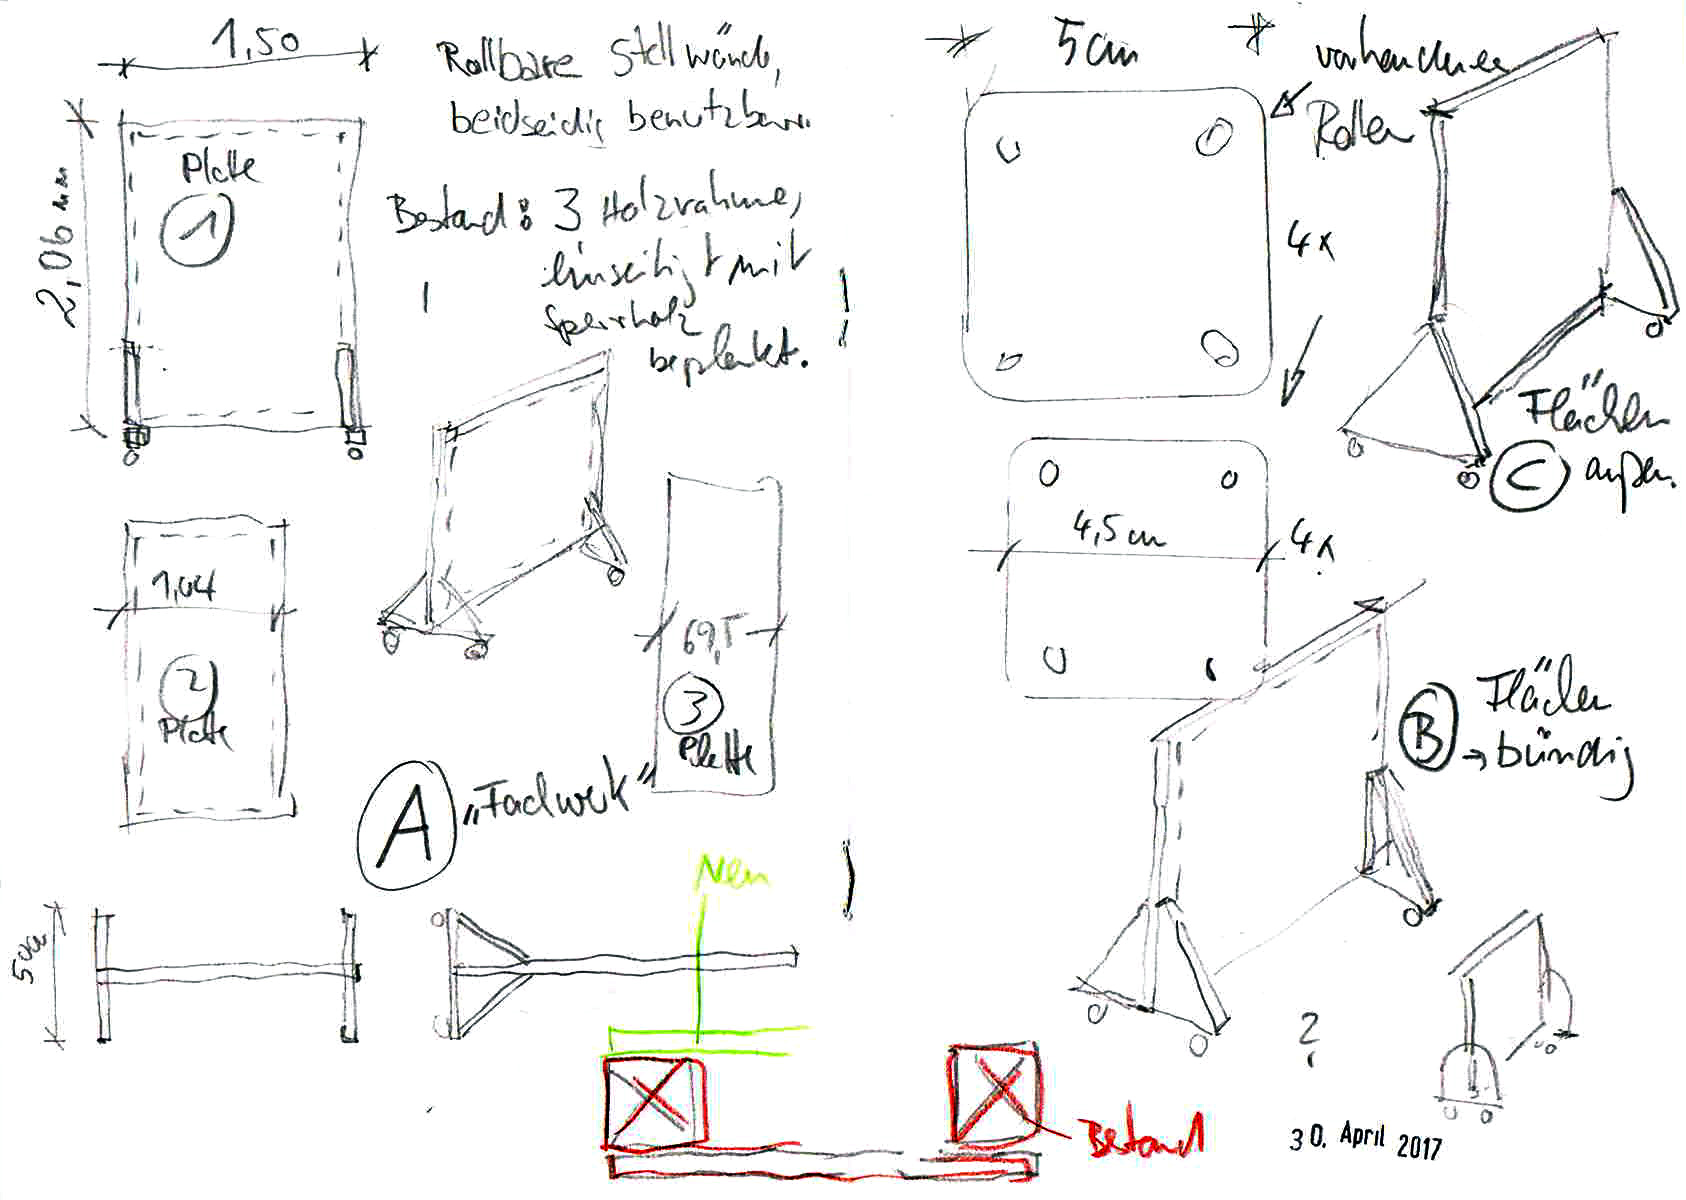 1,50
Rollbare Stellwände,
beidseidig benutzbar.
2,06
Platte
1
Bestand: 3 Holzrahme,
einseitigt mit
Sperrholz
beplankt.
1,04
2
Platte
69,5
3
Platte
A "Fachwerk"
50cm
Neu
Bestand
5cm
vorhandene
Rollen
4x
Flächen
C außen.
4,5cm
4x
B Flächen
→ bündig
?
30. April 2017